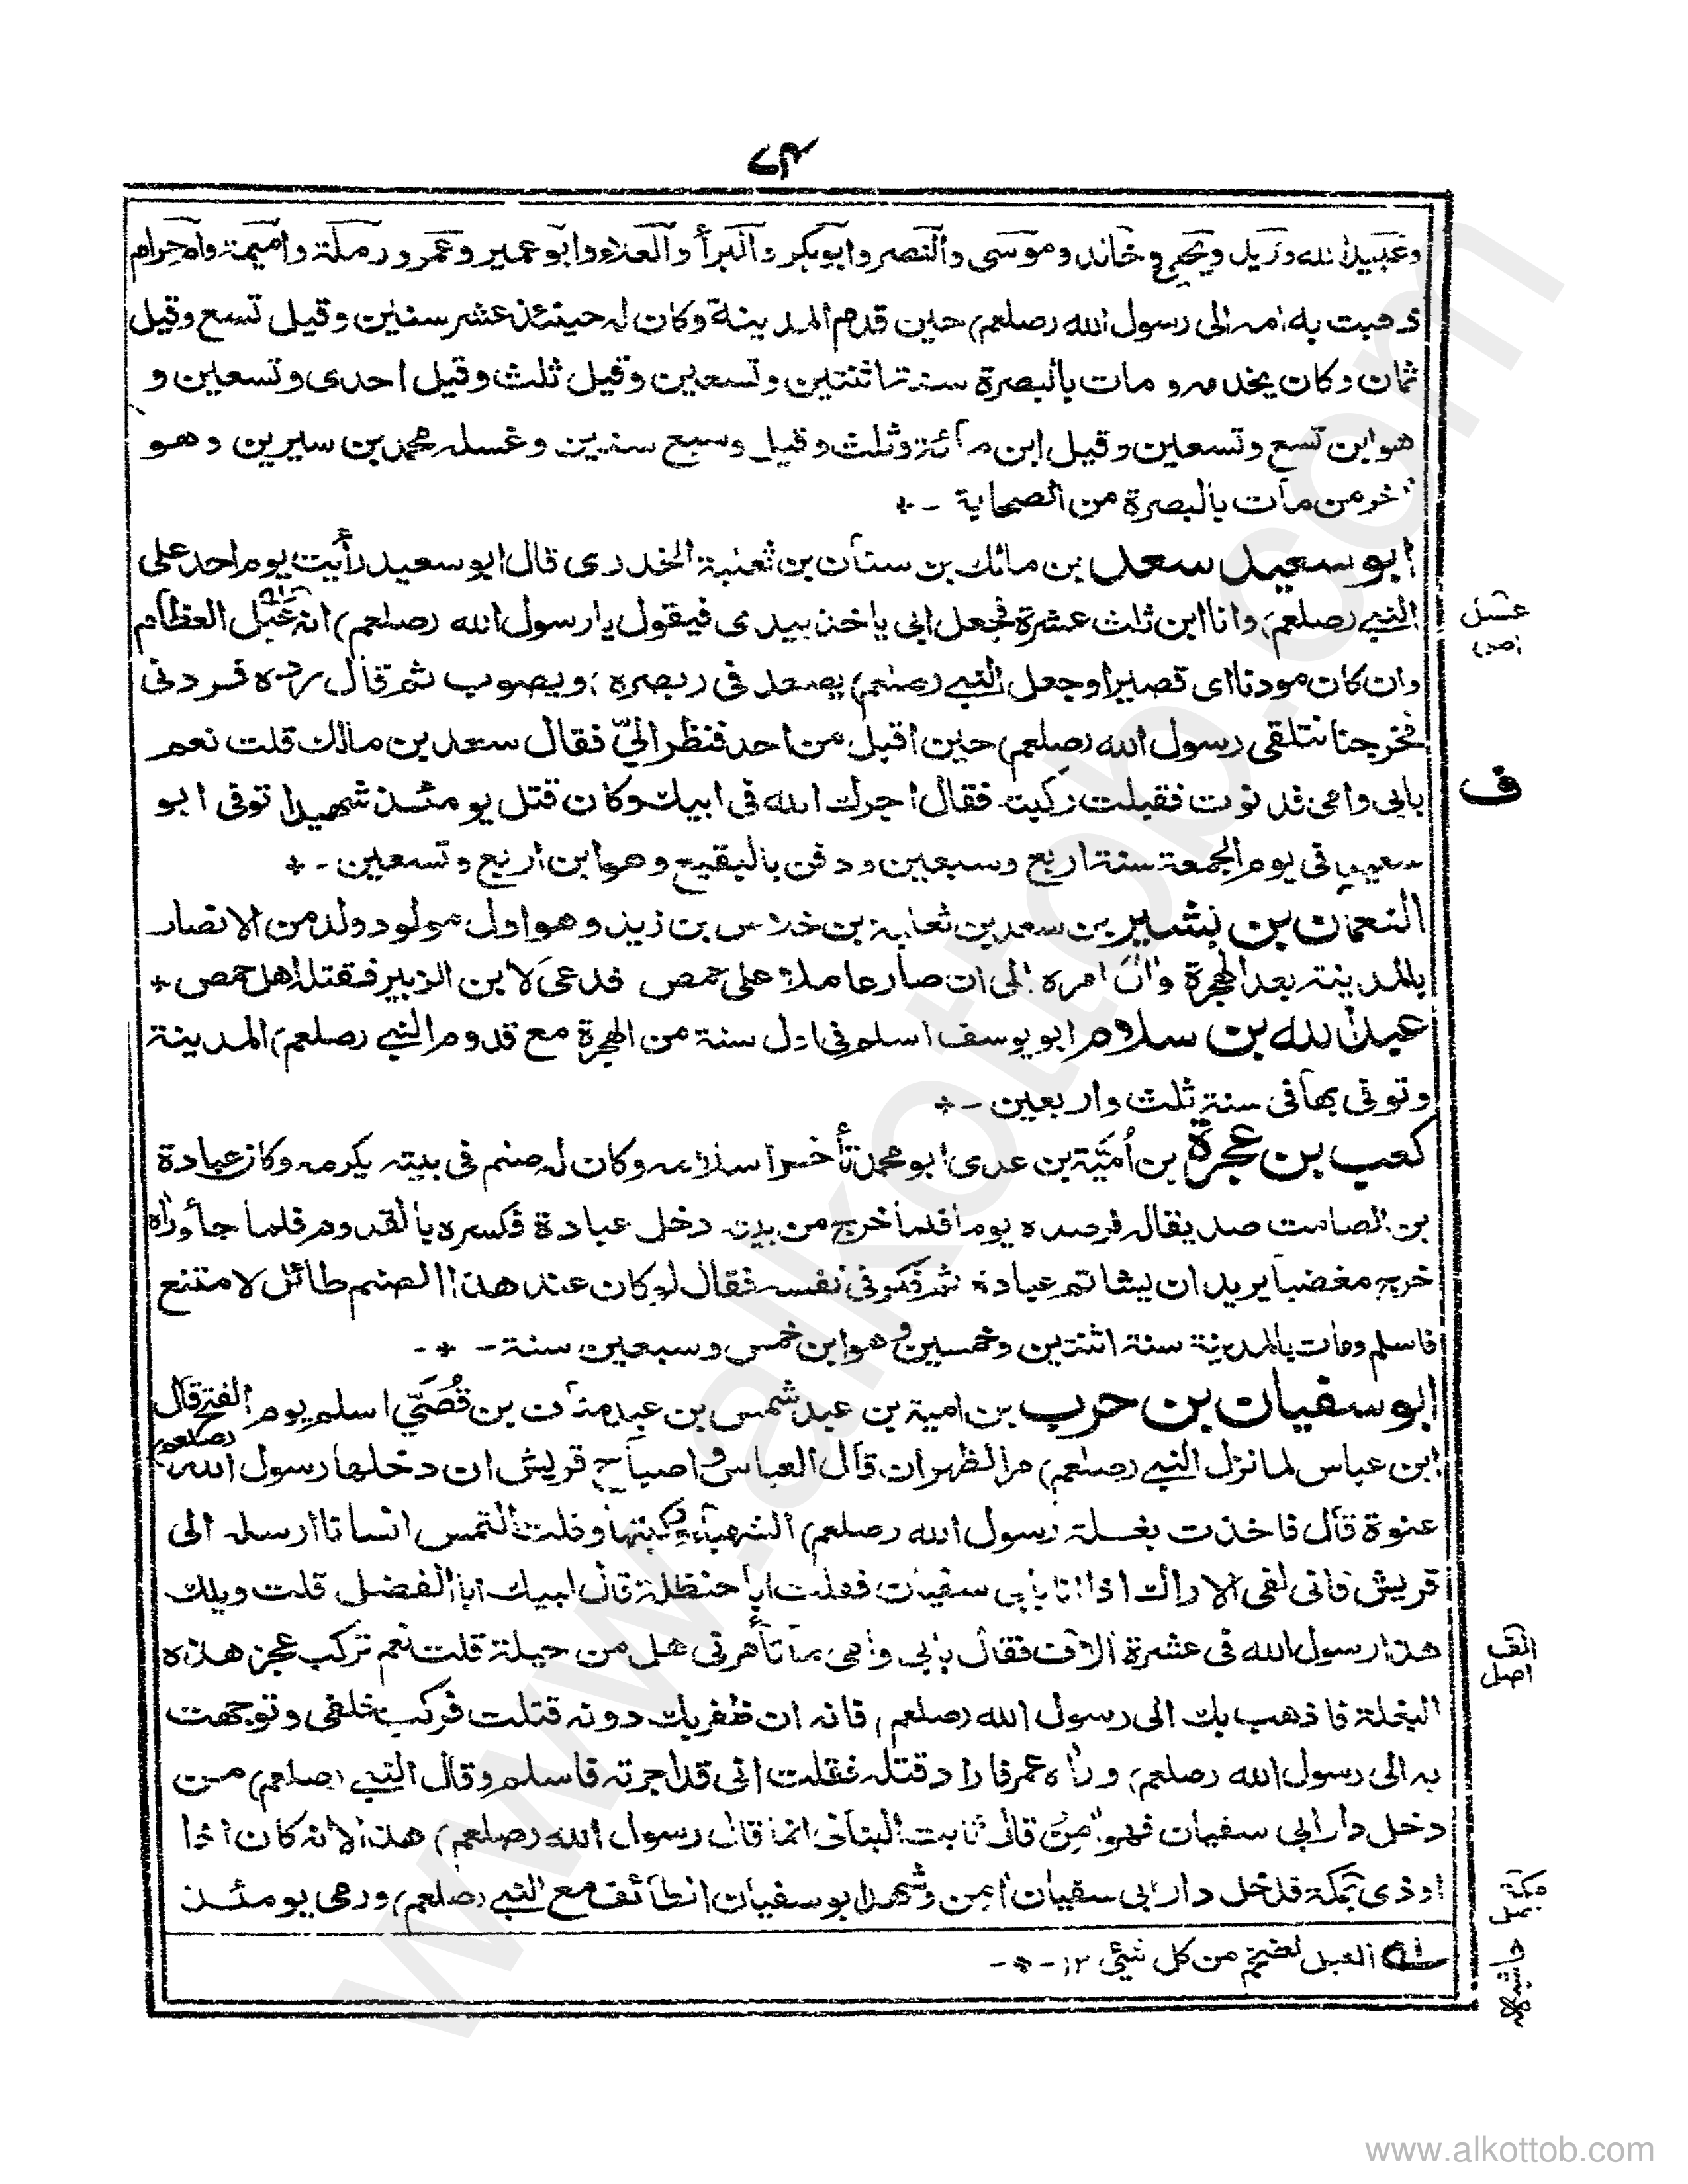 ٧٤
وعبيد الله وزيد ويحيى وخالد وموسى والنصر وابوبكر والبرأ والعلاء وابو عمير وعمرو ورملة واميمة وام حرام
ذهبت به امه الى رسول الله (صلعم) حين قدم المدينة وكان له حينئذ عشر سنين وقيل تسع وقيل
ثمان وكان يخدمه ومات بالبصرة سنة اثنتين وتسعين وقيل ثلث وقيل احدى وتسعين و
هو ابن تسع وتسعين وقيل ابن مائة وثلث وقيل وسبع سنين وغسله محمد بن سيرين وهو
آخر من مات بالبصرة من الصحابة -*
ابو سعيد سعد بن مالك بن سنان بن ثعلبة الخدرى قال ابو سعيد رأيت يوم احد على
النبي (صلعم) وانا ابن ثلث عشرة فجعل ابى ياخذ بيدى فيقول يا رسول الله (صلعم) انه عبل العظام
وان كان مودنا اى قصيرا وجعل النبي (صلعم) يصعد فى (بصره) ويصوب ثم قال رده فردنى
فخرجنا نتلقى رسول الله (صلعم) حين اقبل من احد فنظر اليّ فقال سعد بن مالك قلت نعم
بابى وامى فدنوت فقبلت ركبته فقال اجرك الله فى ابيك وكان قتل يومئذ شهيدا توفى ابو
سعيد فى يوم الجمعة سنة اربع وسبعين ودفن بالبقيع وهو ابن اربع وتسعين -*
النعمان بن بشير بن سعد بن ثعلبة بن خلاس بن زيد وهو اول مولود ولد من الانصار
بالمدينة بعد الهجرة وآل امره الى ان صار عاملا على حمص فدعى لابن الزبير فقتله اهل حمص *
عبد الله بن سلام ابو يوسف اسلم فى اول سنة من الهجرة مع قدوم النبي (صلعم) المدينة
وتوفى بها فى سنة ثلث واربعين -*
كعب بن عجرة بن اُميَّة بن عدى ابو محمد تأخر اسلامه وكان له صنم فى بيته يكرمه وكان عبادة
بن الصامت صديقا له فرصده يوما فلما خرج من بيته دخل عبادة فكسره بالقدوم فلما جأ ورأه
خرج مغضبا يريد ان يشاتم عبادة ثم فكر فى نفسه فقال لو كان عند هذا الصنم طائل لامتنع
فاسلم ومات بالمدينة سنة اثنتين وخمسين وهو ابن خمس وسبعين سنة - * -
ابو سفيان بن حرب بن امية بن عبد شمس بن عبد مناف بن قُصَيّ اسلم يوم الفتح قال
ابن عباس لما نزل النبي (صلعم) مر الظهران قال العباس وا صباح قريش ان دخلها رسول الله (صلعم)
عنوة قال فاخذت بغلة رسول الله (صلعم) الشهباء فركبتها وقلت التمس انسانا ارسله الى
قريش فانى لفى الاراك اذا انا بابى سفيان فقلت ابا حنظلة قال لبيك ابا الفضل قلت ويلك
هذا رسول الله فى عشرة آلاف فقال بابى وامى ما تأمرنى هل من حيلة قلت نعم تركب عجز هذه
البغلة فاذهب بك الى رسول الله (صلعم) فانه ان ظفر بك دونه قتلت فركب خلفى وتوجهت
به الى رسول الله (صلعم) ورأه عمر فاراد قتله فقلت انى قد اجرته فاسلم وقال النبي (صلعم) من
دخل دار ابى سفيان فهو آمن قال ثابت البنانى انما قال رسول الله (صلعم) هذا لانه كان اذا
اوذى بمكة فدخل دار ابى سفيان امن وشهد ابو سفيان الطائف مع النبي (صلعم) ورمى يومئذ
العبل الضخم من كل شيئ ١٢ - * -
اصل
ف
الف
اصل
حاشيه
www.alkottob.com
www.alkottob.com